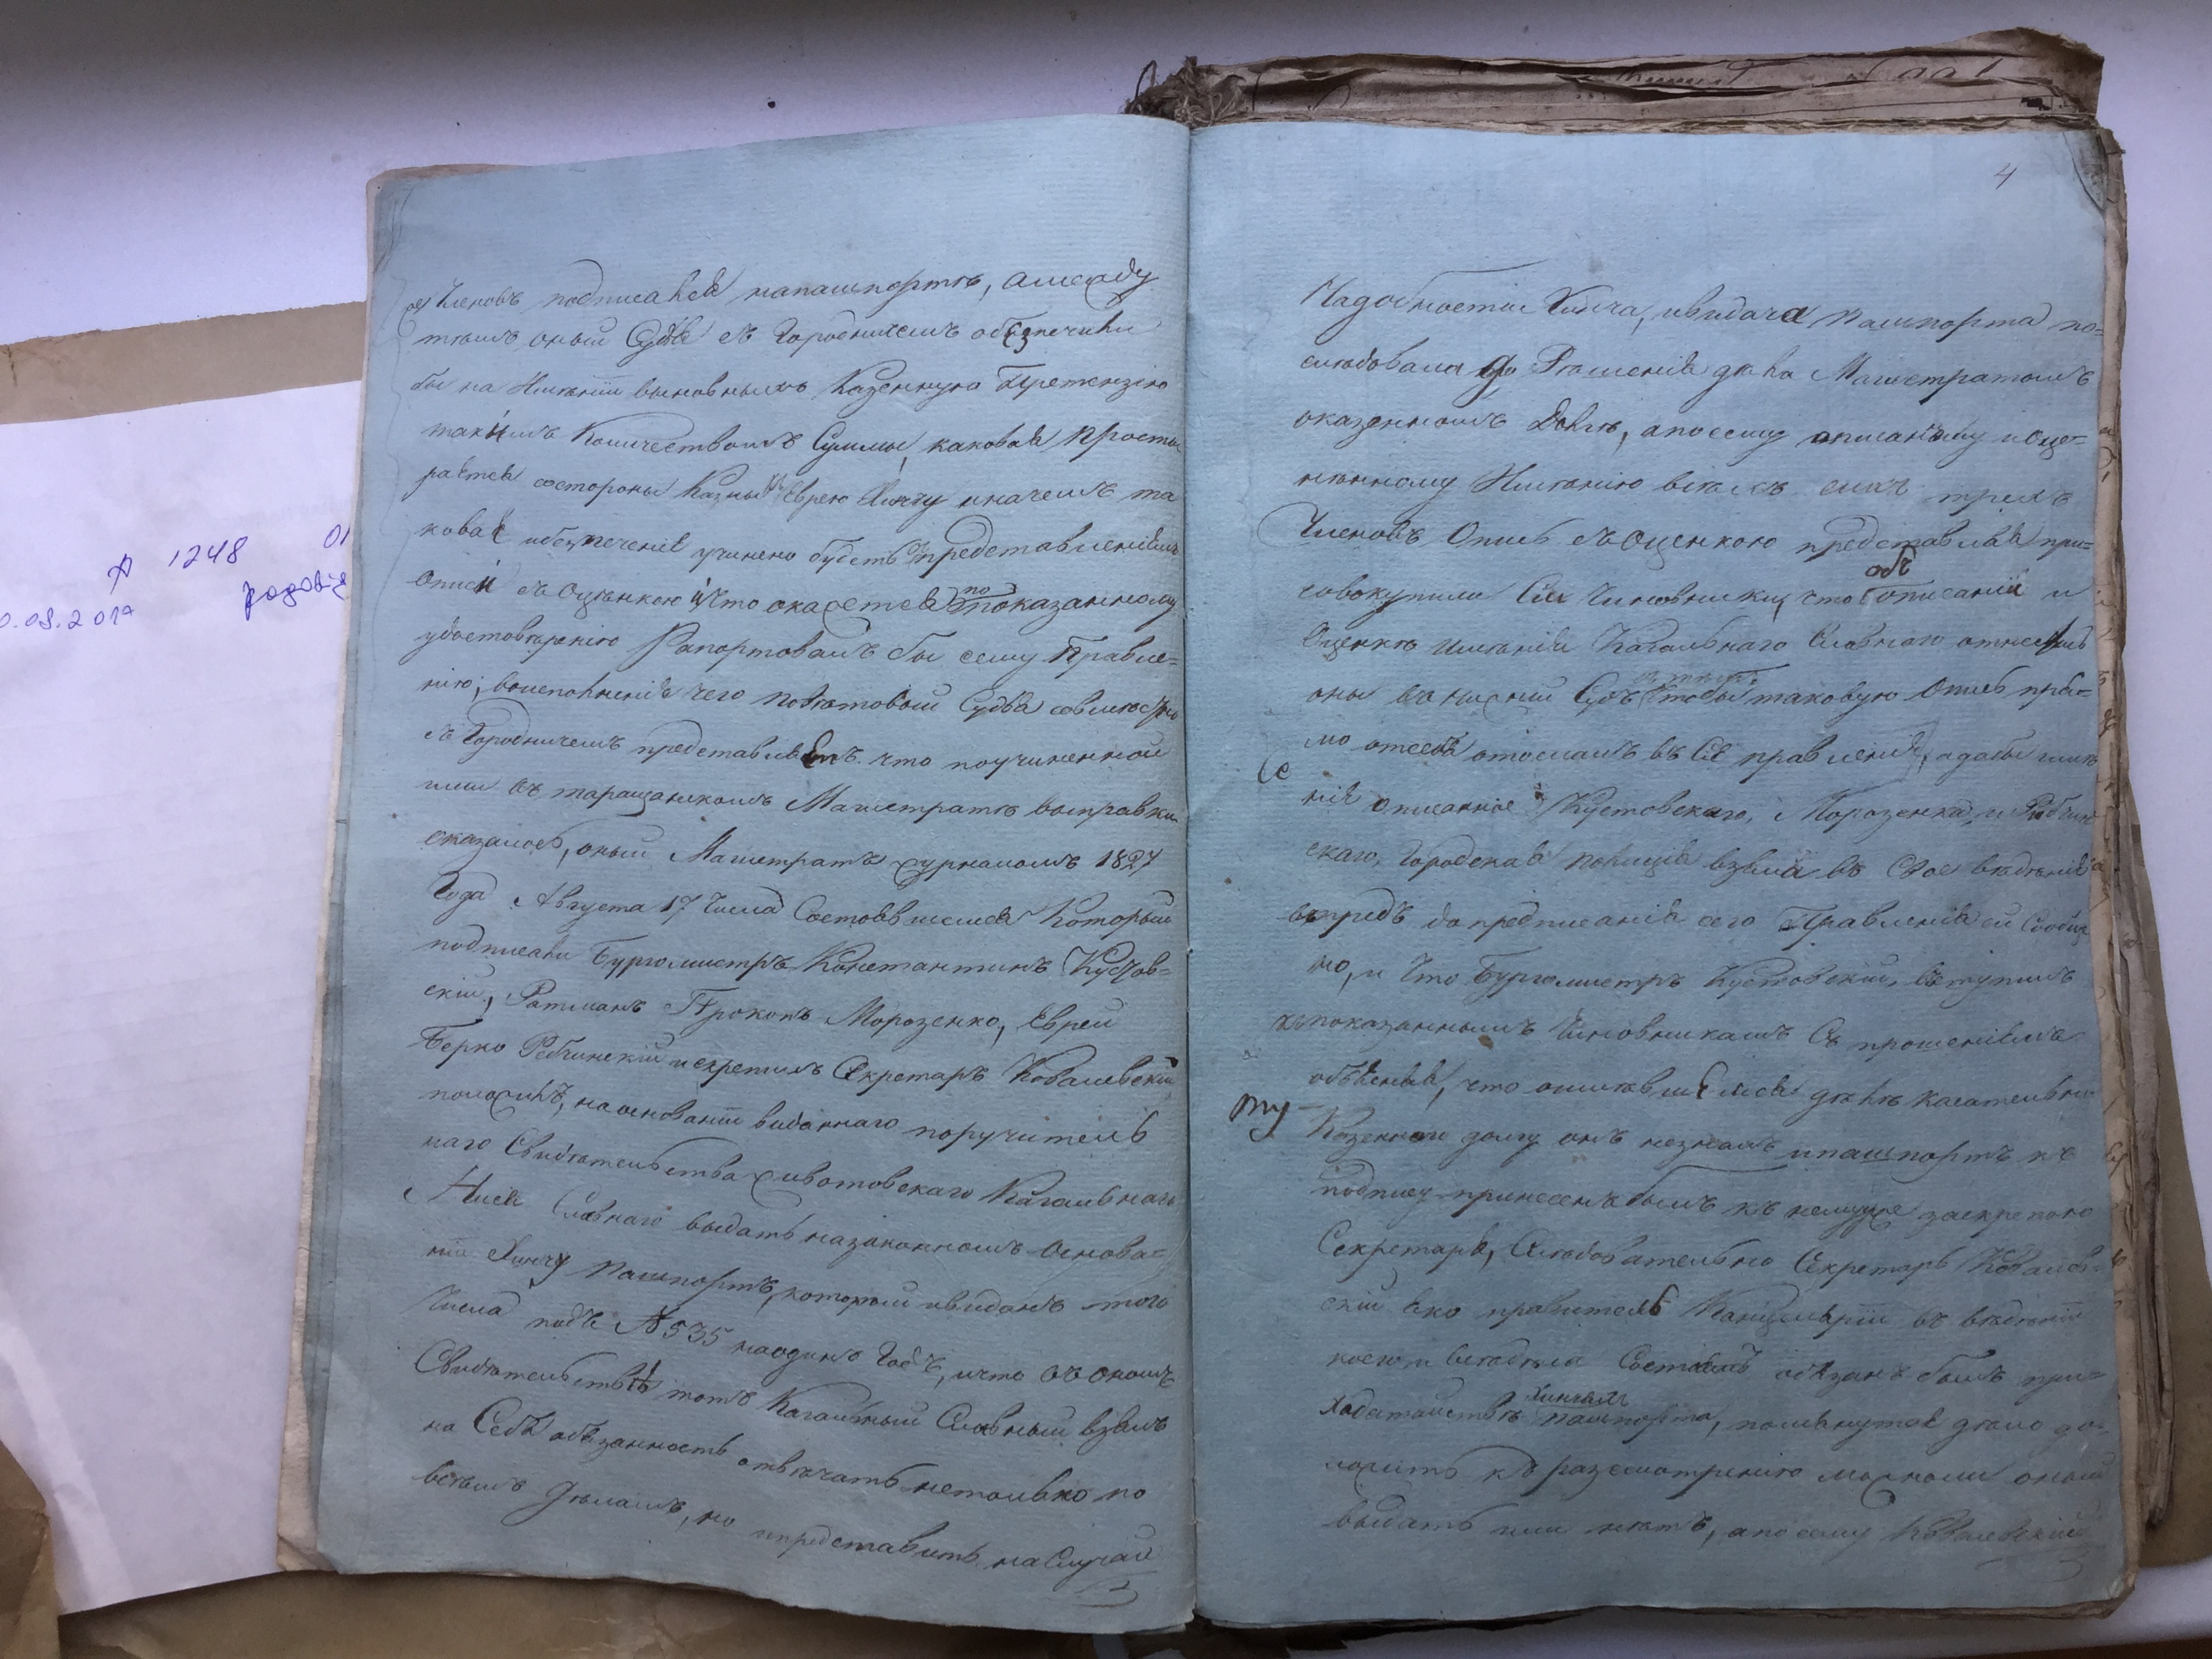 Членовъ подписался напашпортѣ, а между
тѣмъ оный Судья съ Городничемъ обезпечили
бы на Имѣніи выновныхъ Казенную Претензію
такимъ Количествомъ Суммы, каковая прости
рается состороны Казны къ Еврею Хинчу иначемъ та
ковая обезпеченіе учинено будетъ съ представленіемъ
Описи съ Оцѣнкою и Что окажется по показанному
удостовѣренію Рапортовалъ бы сему Правле=
нію; воисполненія чего повѣтовый Судья совместно
съ Городничемъ представляетъ что поучиненной
ими въ таращанскомъ Магистратѣ выправки
оказалось, оный Магистратъ журналомъ 1827
Года Августа 17 Числа Состоявшемся Который
подписали Бургомистръ Константинъ Кустов=
скій, Ратманъ Прокопъ Морозенко, Еврей
Берко Рабчинскій искрепилъ Секретарь Ковалевскій
положилъ, наоснованіи виданнаго поручитель
наго Свидѣтельства животовскаго Кагальнаго
Аися Славнаго выдать назаконномъ Основа=
ніи Хинчу Пашпортъ, который ивиданъ того
Числа подъ № 535 наодинъ Годъ, ичто въ ономъ
Свидѣтельствѣ тотъ Кагальный Славный взялъ
на Себя обязанность отвѣчать нетолько по
всѣмъ Дѣламъ, но ипредставить на Случай
4
Надобности Хинча, ивидача Пашпорта по=
слѣдовала до Рѣшенія дѣла Магистратомъ
оказенномъ Долгѣ, апосему описанному иоце=
нѣнному Имѣнію всѣхъ сихъ трехъ
Членовъ Опись съ Оценкою представляя при=
совокупили Сіи Чиновники, что объ описаніи и
Оценкѣ имѣнія Кагальнаго Славнаго отнеслись
оны въ нижній Судъ чтобы таковую Опись пря=
мо отсебя отослалъ въ Сіе правленіе, адабы имѣ
нія описанніе Кустовскаго, Морозенка, и Рабчин
скаго, Городская полиція взяла въ Свое вѣдѣніе
впредь до предписанія сего Правленія ей Сообще
но, и Что Бургомистръ Кустовскій, вступилъ
къпоказаннымъ Чиновникамъ Съ прошеніемъ
объясняя, что оимѣвшемся дѣлѣ касательно
ту
Казенной долгу онъ незналъ ипашпортъ къ
подпису принесенъ былъ къ нему уже заскрепою
Секретаря, Слѣдовательно Секретарь Ковалев=
скій яко правитель Канцеляріи въ вѣдѣніи
коего и всѣ дѣла Состоятъ обязанъ былъ при=
Ходатайствѣ Хинчемъ пашпорта, помянутое дѣло до=
ложить къ разсмотренію можноли оный
выдать или нѣтъ, апосему Ковалевскій
№ 1248